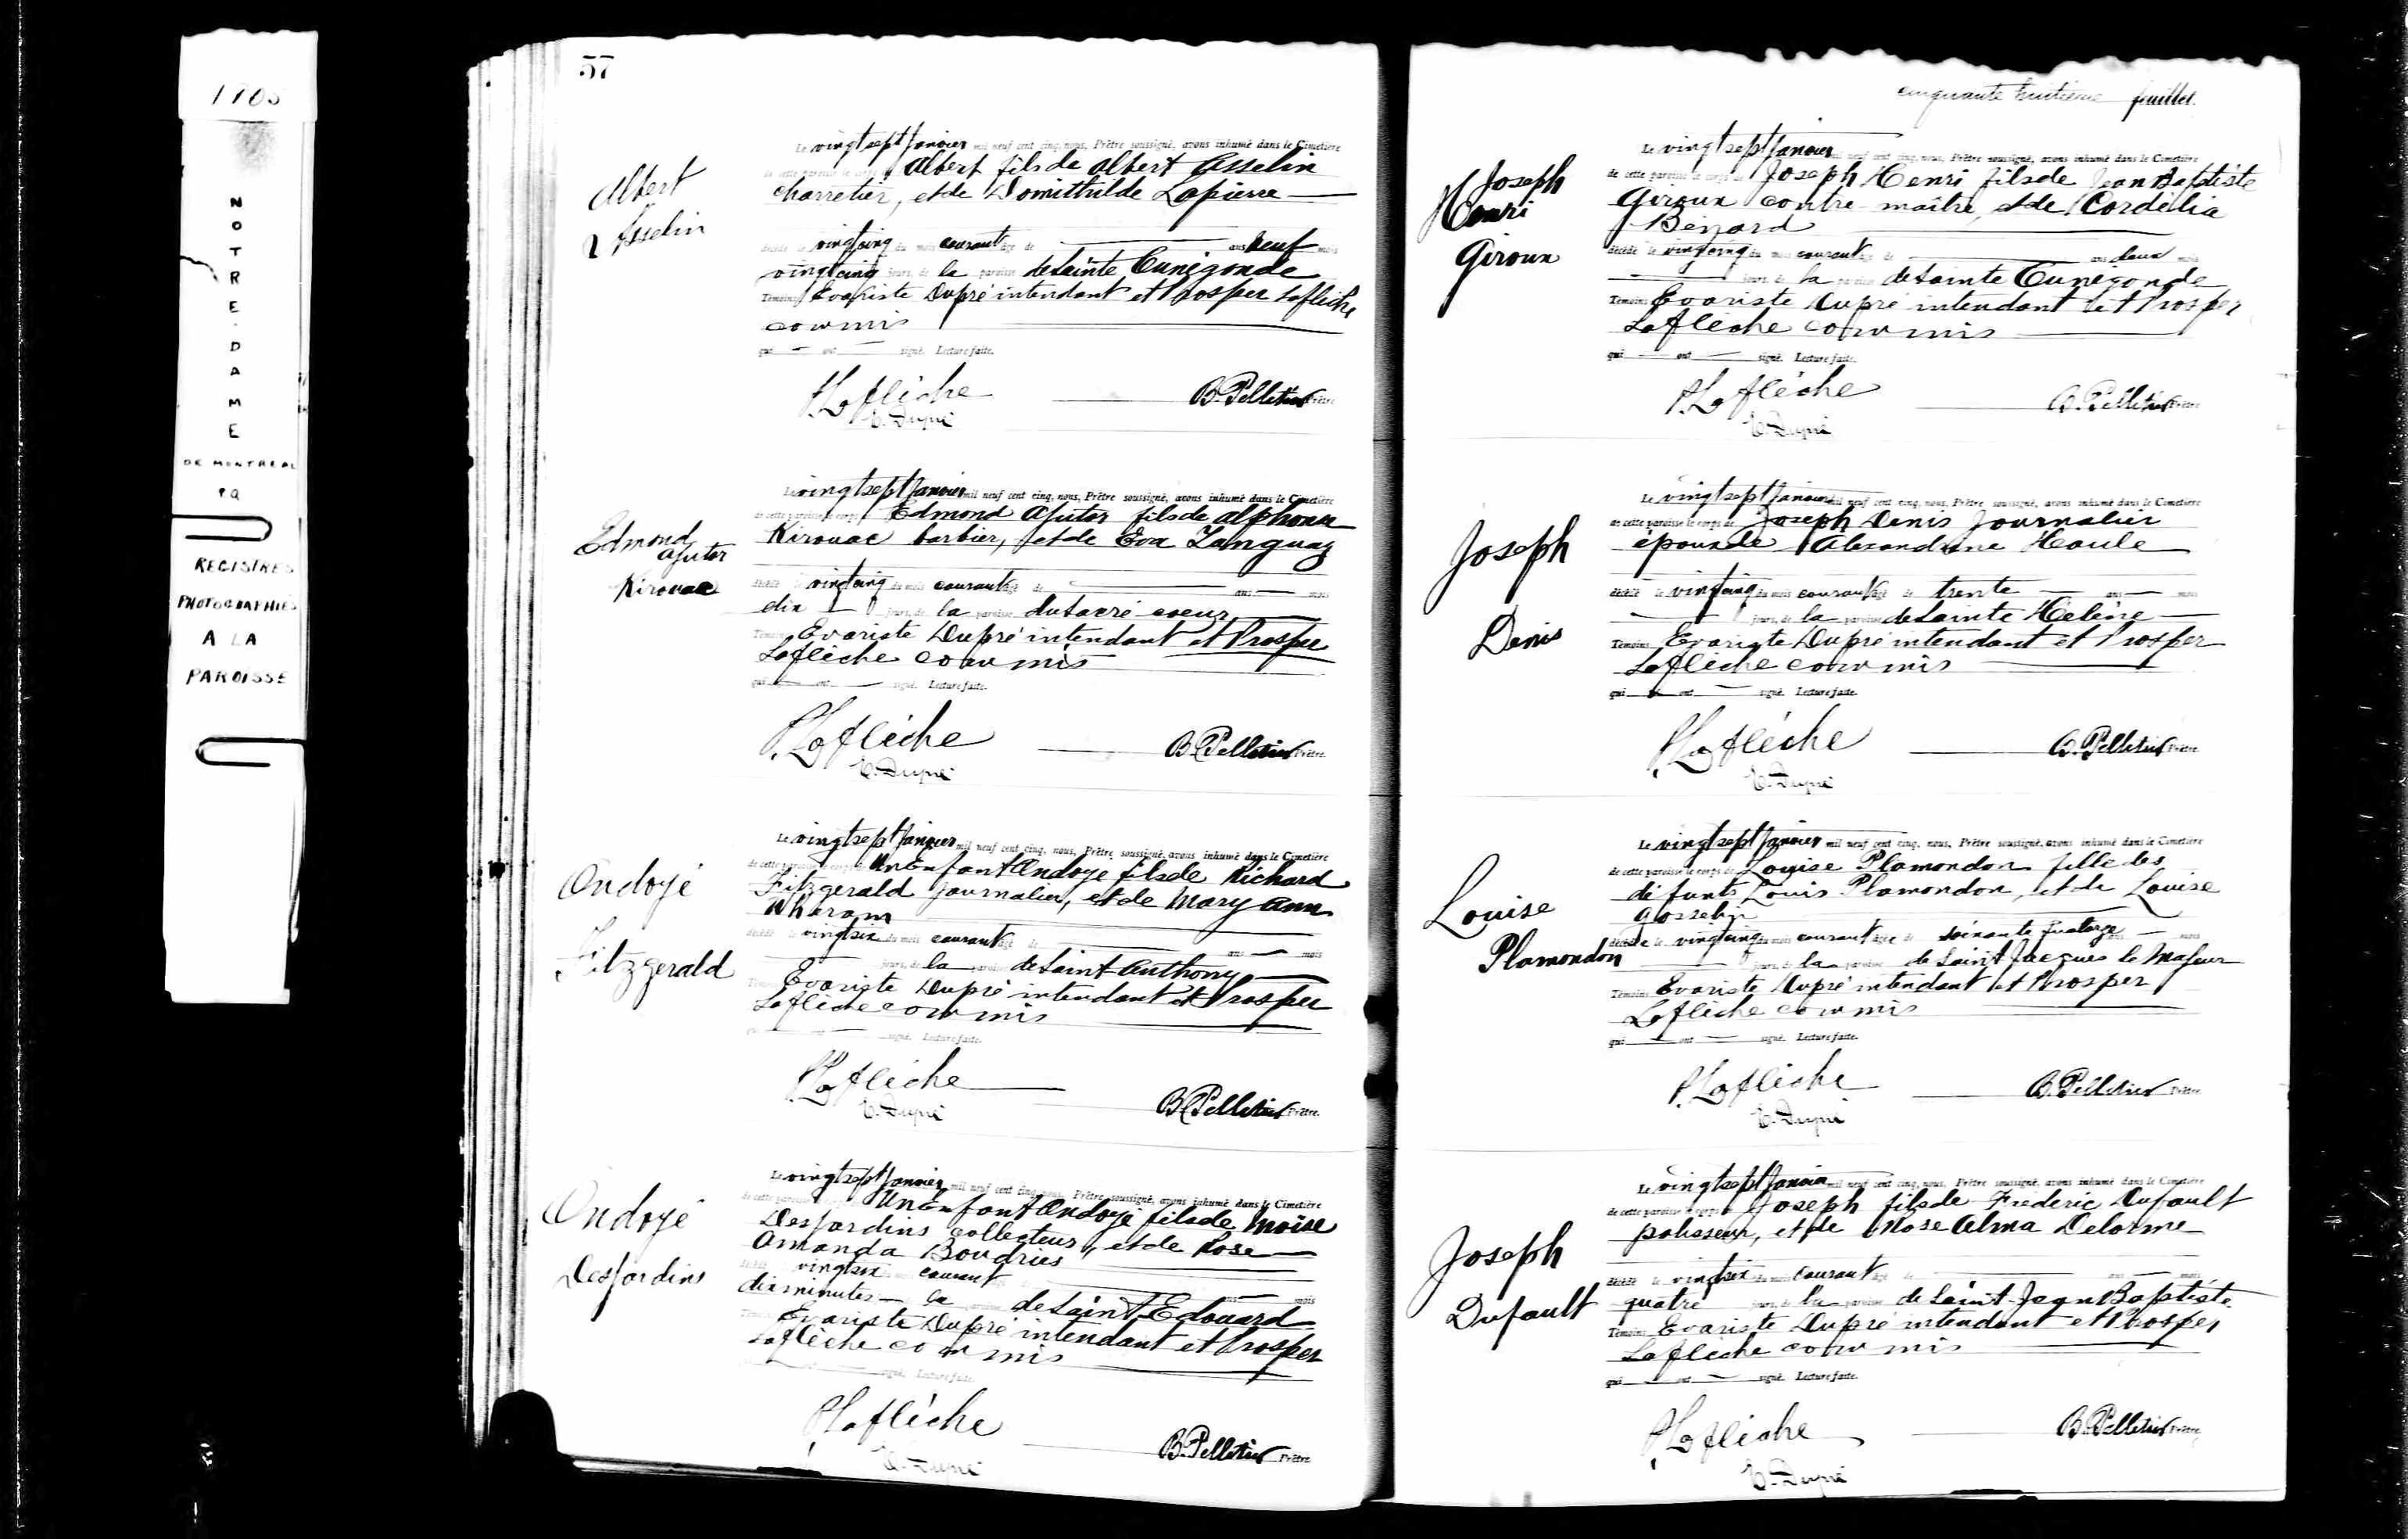 1905
NOTRE-DAME
DE MONTREAL
PQ
REGISTRES
PHOTOGRAPHIÉS
A LA
PAROISSE
57
Albert
Asselin
Le vingt sept Janvier mil neuf cent cinq, nous, Prêtre soussigné, avons inhumé dans le Cimetière
de cette paroisse le corps de Albert fils de Albert Asselin
charretier, et de Domithilde Lapierre
décédé le vingt cinq du mois courant âgé de ans neuf mois
vingt cinq jours, de la paroisse de Sainte Cunégonde
Témoins Evariste Dupré intendant et Prosper Laflèche
commis
qui ont signé. Lecture faite.
P. Laflèche
B. Pelletier Prêtre
E. Dupré
Edmond
Ajutor
Kirouac
Le vingt sept Janvier mil neuf cent cinq, nous, Prêtre soussigné, avons inhumé dans le Cimetière
de cette paroisse le corps de Edmond Ajutor fils de Alphonse
Kirouac barbier, et de Eva Languay
décédé le vingt cinq du mois courant âgé de ans mois
dix jours, de la paroisse du Sacré coeur
Témoins Evariste Dupré intendant et Prosper
Laflèche commis
qui ont signé. Lecture faite.
P. Laflèche
B. Pelletier Prêtre
E. Dupré
Ondoyé
Fitzgerald
Le vingt sept Janvier mil neuf cent cinq, nous, Prêtre soussigné, avons inhumé dans le Cimetière
de cette paroisse le corps de Un Enfant Ondoyé fils de Richard
Fitzgerald Journalier, et de Mary Ann
décédé le vingt six du mois courant âgé de ans mois
jours, de la paroisse de Saint Anthony
Témoins Evariste Dupré intendant et Prosper
Laflèche commis
signé. Lecture faite.
P. Laflèche
B. Pelletier Prêtre
E. Dupré
Ondoyé
Desjardins
Le vingt sept Janvier mil neuf cent cinq, nous, Prêtre soussigné, avons inhumé dans le Cimetière
de cette paroisse Un Enfant Ondoyé fils de Moïse
Desjardins collecteur, et de Rose
Amanda Boudrias
vingt six courant ans mois
dix minutes la paroisse de Saint Edouard
Evariste Dupré intendant et Prosper
Laflèche commis
signé. Lecture faite.
P. Laflèche
B. Pelletier Prêtre
E. Dupré
cinquante huitième feuillet.
Joseph
Henri
Giroux
Le vingt sept Janvier mil neuf cent cinq, nous, Prêtre soussigné, avons inhumé dans le Cimetière
de cette paroisse le corps de Joseph Henri fils de Jean Baptiste
Giroux contre-maître, et de Cordélia
Bénard
décédé le vingt cinq du mois courant âgé de ans deux mois
jours, de la paroisse de Sainte Cunégonde
Témoins Evariste Dupré intendant et Prosper
Laflèche commis
qui ont signé. Lecture faite.
P. Laflèche
B. Pelletier Prêtre
E. Dupré
Joseph
Denis
Le vingt sept Janvier mil neuf cent cinq, nous, Prêtre soussigné, avons inhumé dans le Cimetière
de cette paroisse le corps de Joseph Denis Journalier
époux de Alexandrine Houle
décédé le vingt cinq du mois courant âgé de trente ans mois
jours, de la paroisse de Sainte Hélène
Témoins Evariste Dupré intendant et Prosper
Laflèche commis
qui ont signé. Lecture faite.
P. Laflèche
B. Pelletier Prêtre
E. Dupré
Louise
Plamondon
Le vingt sept Janvier mil neuf cent cinq, nous, Prêtre soussigné, avons inhumé dans le Cimetière
de cette paroisse le corps de Louise Plamondon fille des
défunts Louis Plamondon, et de Louise
Gosselin
décédée le vingt cinq du mois courant âgée de soixante quatorze ans mois
jours, de la paroisse de Saint Jacques le Majeur
Témoins Evariste Dupré intendant et Prosper
Laflèche commis
qui ont signé. Lecture faite.
P. Laflèche
B. Pelletier Prêtre
E. Dupré
Joseph
Dufault
Le vingt sept Janvier mil neuf cent cinq, nous, Prêtre soussigné, avons inhumé dans le Cimetière
de cette paroisse le corps de Joseph fils de Frédéric Dufault
polisseur, et de Rose Alma Delorme
décédé le vingt six du mois courant âgé de ans mois
quatre jours, de la paroisse de Saint Jean Baptiste
Témoins Evariste Dupré intendant et Prosper
Laflèche commis
qui ont signé. Lecture faite.
P. Laflèche
B. Pelletier Prêtre
E. Dupré